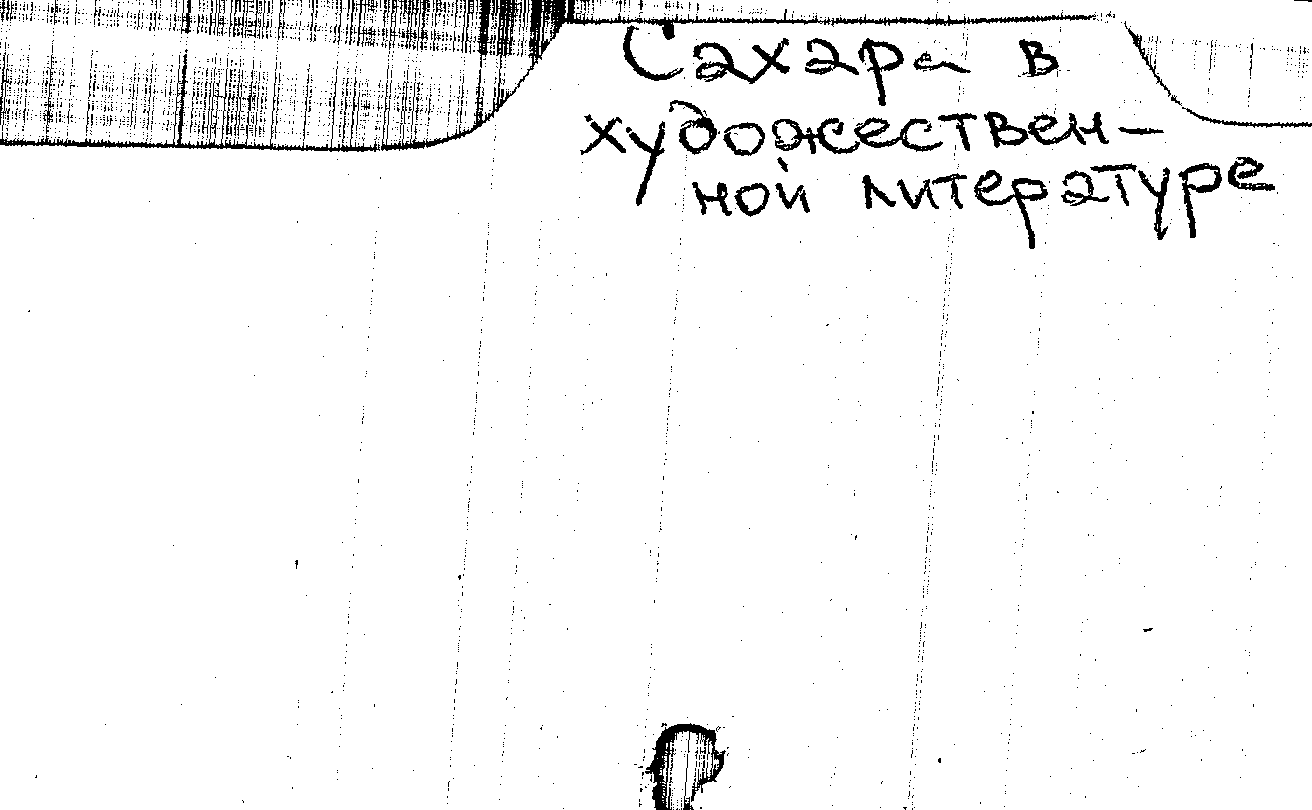 Сахара в
художествен-
ной литературе